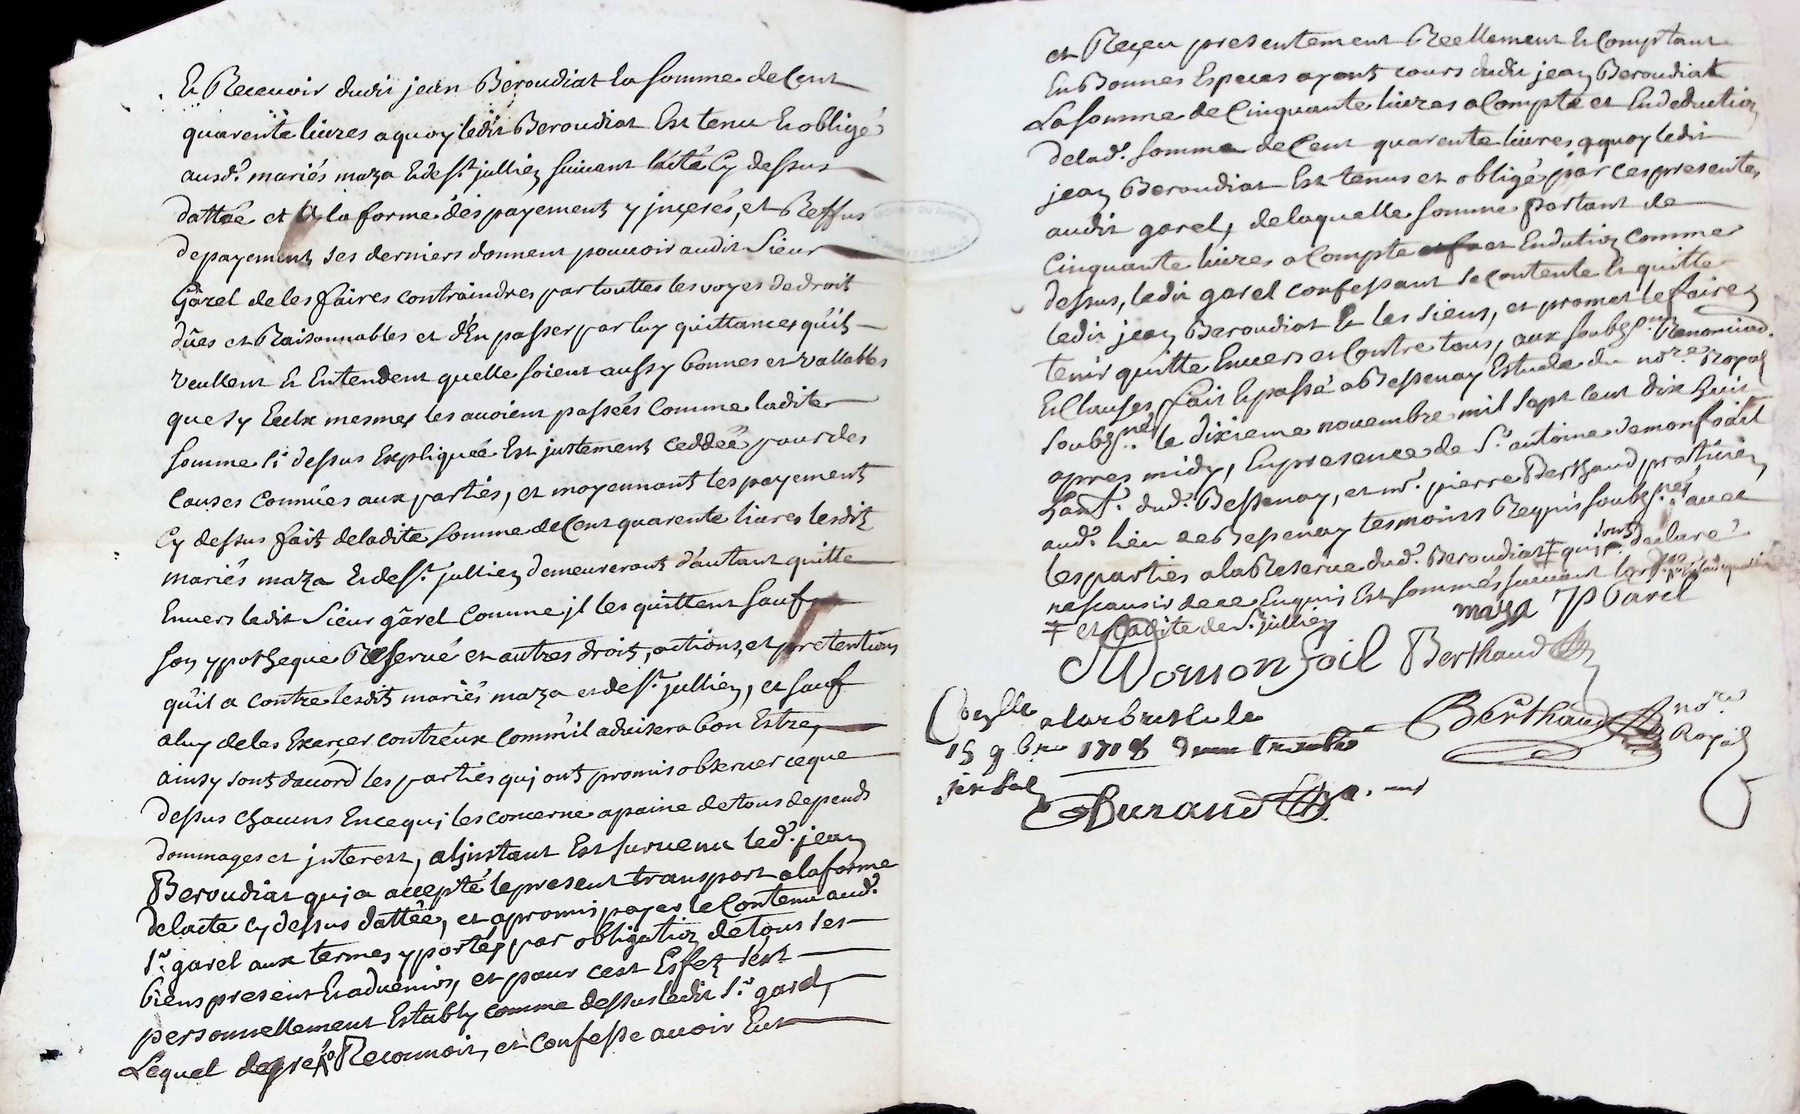 Et Recevoir dudit jean Beroudiat la somme de Cent
quarente livres a quoy ledit Beroudiat Est tenu Et obligé
ausd. mariés maza Et de St. jullien suivant l'acte Cy dessus
dattée et a la forme des payements y jnserés, et Reffus
de payement ses derniers donnent pouvoir audit Sieur
Garel de les faires contraindres par touttes les voyes de droit
dûes et Raisonnables et d'En passer par luy quittances qu'ils
veullent Et Entendent quelle soient aussy bonnes et vallables
que sy Eulx mesmes les avoient passées Comme ladite
somme si dessus Expliquée Est justement ceddée pour des
Causes Connues aux partiés, et moyennant les payement
Cy dessus fait de ladite somme de Cent quarente livres lesdits
mariés maza Et de St. jullien demeureront d'autant quitte
Envers ledit Sieur garel Comme jl les quittent sauf
son ypotheque Reservé et autres droits, actions, et pretentions
qu'il a contre lesdits mariés maza et de St. jullien, et sauf
a luy de les Exerçer contr'eux Comm'il advisera bon Estre,
ainsy sont d'acord les partiés quj ont promis observer ce que
dessus chacuns En ce quj les concerne a paine de tous depends
dommages et jnterest, a ljnstant Est survenu led. jean
Beroudiat quj a accepté le present transport a la forme
de l'acte cy dessus dattée, et a promis payer le Contenu aud.
Sr. garel aux termes y portés par obligation de tous ses
biens present Et advenirs, et pour cest Effet s'est
personnellement Estably comme dessus ledit Sr. garel,
Lequel de gré Reconnoit, et Confesse avoir Eut
et Reçeu presentement Réellement Et Comptant
En Bonnes Especes ayant cours dudit jean Beroudiat
La somme de Cinquante livres a Compte et En deduction
de lad. somme de Cent quarente livres a quoy ledit
jean Beroudiat Est tenus et obligé par ces presentes
audit garel, de laquelle somme partant de
Cinquante livres a Compte et En dution comme
dessus, ledit garel confessant se contente Et quitte
ledit jean Beroudiat Et les siens, et promet le faire
tenir quitte Envers et Contre tous, aux soubmons Renonciaons.
Et Clauses, fait Et passé a Bessenay Estude du nore. Royal
soubsné. le dixieme novembre mil sept cent dix huit
apres midy, En presence de Sr. antoine demonfoit
habt. dud. Bessenay, et mr. pierre Berthaud, praticien
aud. lieu de Bessenay tesmoins Requis soubsnés avec
les parties a la Reserve dud. Beroudiat ‡ quj ont declaré
ne scavoir de ce Enquis Et sommés suivant lord.
‡ et ladite de St. jullien
maza JP Garel
Demonfoit Berthaud
Berthaud nore
Royal
Coellé a larbresle le
15 9bre 1718
Durand